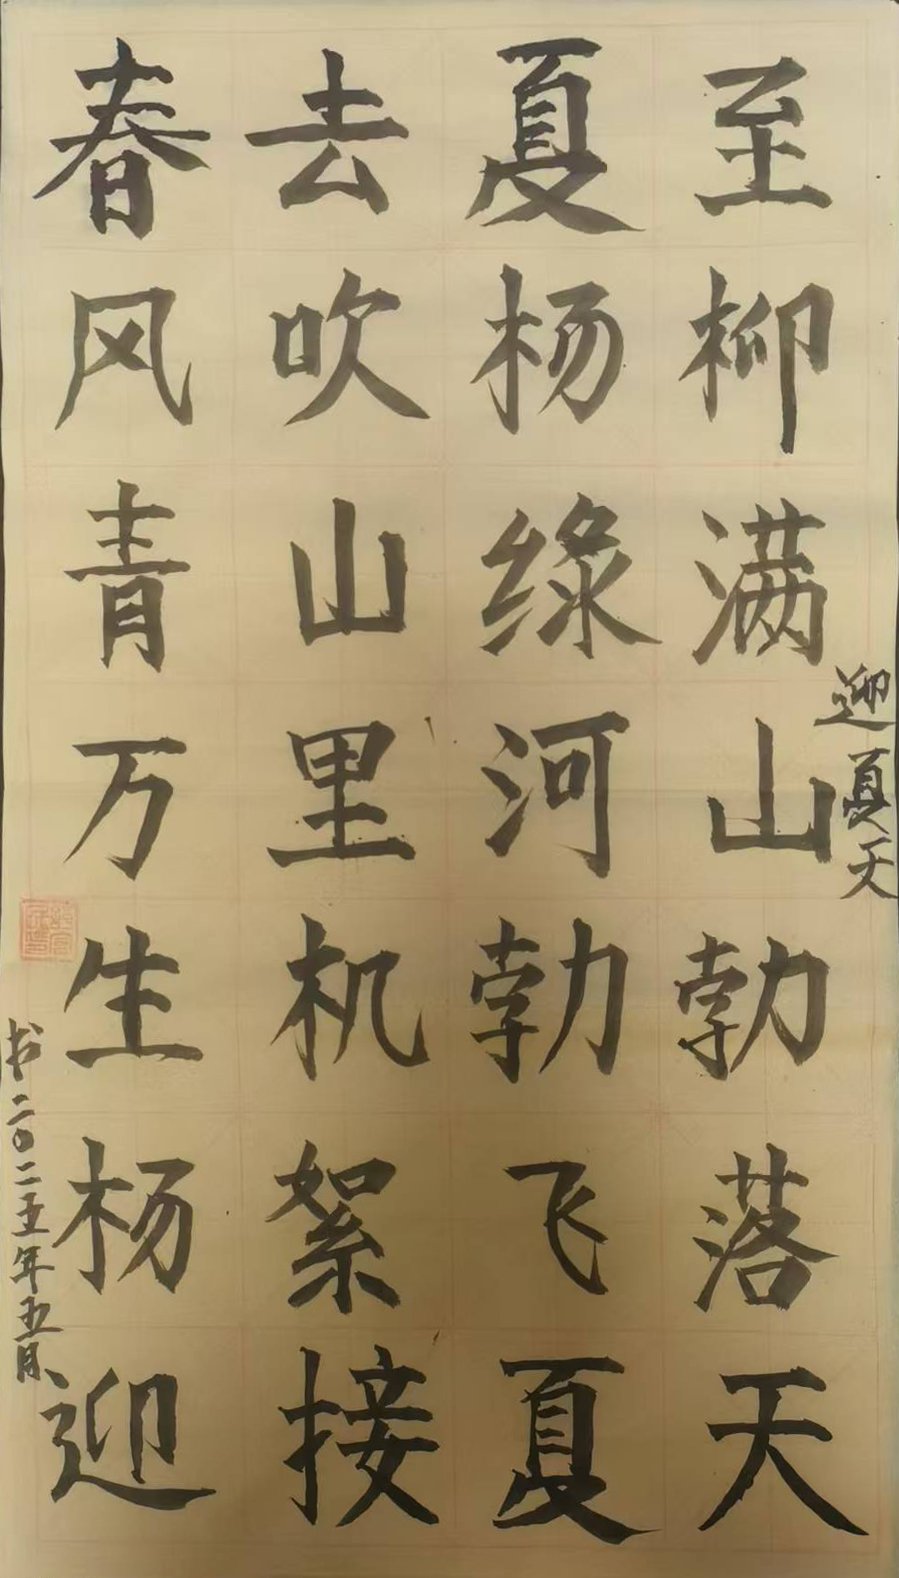 迎夏天
春去夏至
风吹杨柳
青山绿满
万里河山
生机勃勃
杨絮飞落
迎接夏天
书二〇二五年五月